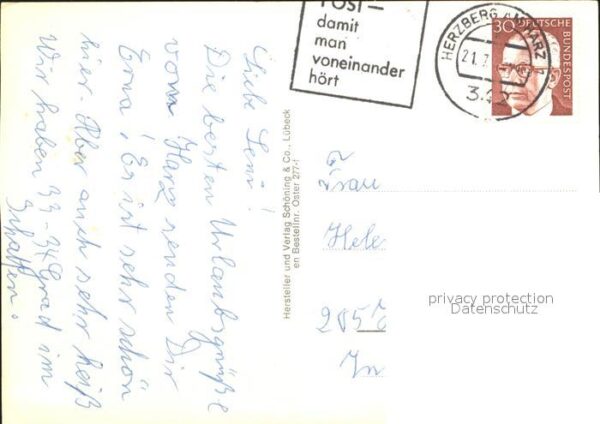 Liebe Leni!
Die besten Urlaubsgrüße
vom Harz senden Dir
Erna! Es ist sehr schön
hier. Aber auch sehr heiß
Wir haben 33-34 Grad im
Schatten.
Hersteller und Verlag Schöning & Co., Lübeck
en Bestellnr. Oster 277-1
POST —
damit
man
voneinander
hört
HERZBERG AM HARZ 1
21.7.
342
30
DEUTSCHE
BUNDESPOST
Frau
Hele
285
privacy protection
Datenschutz